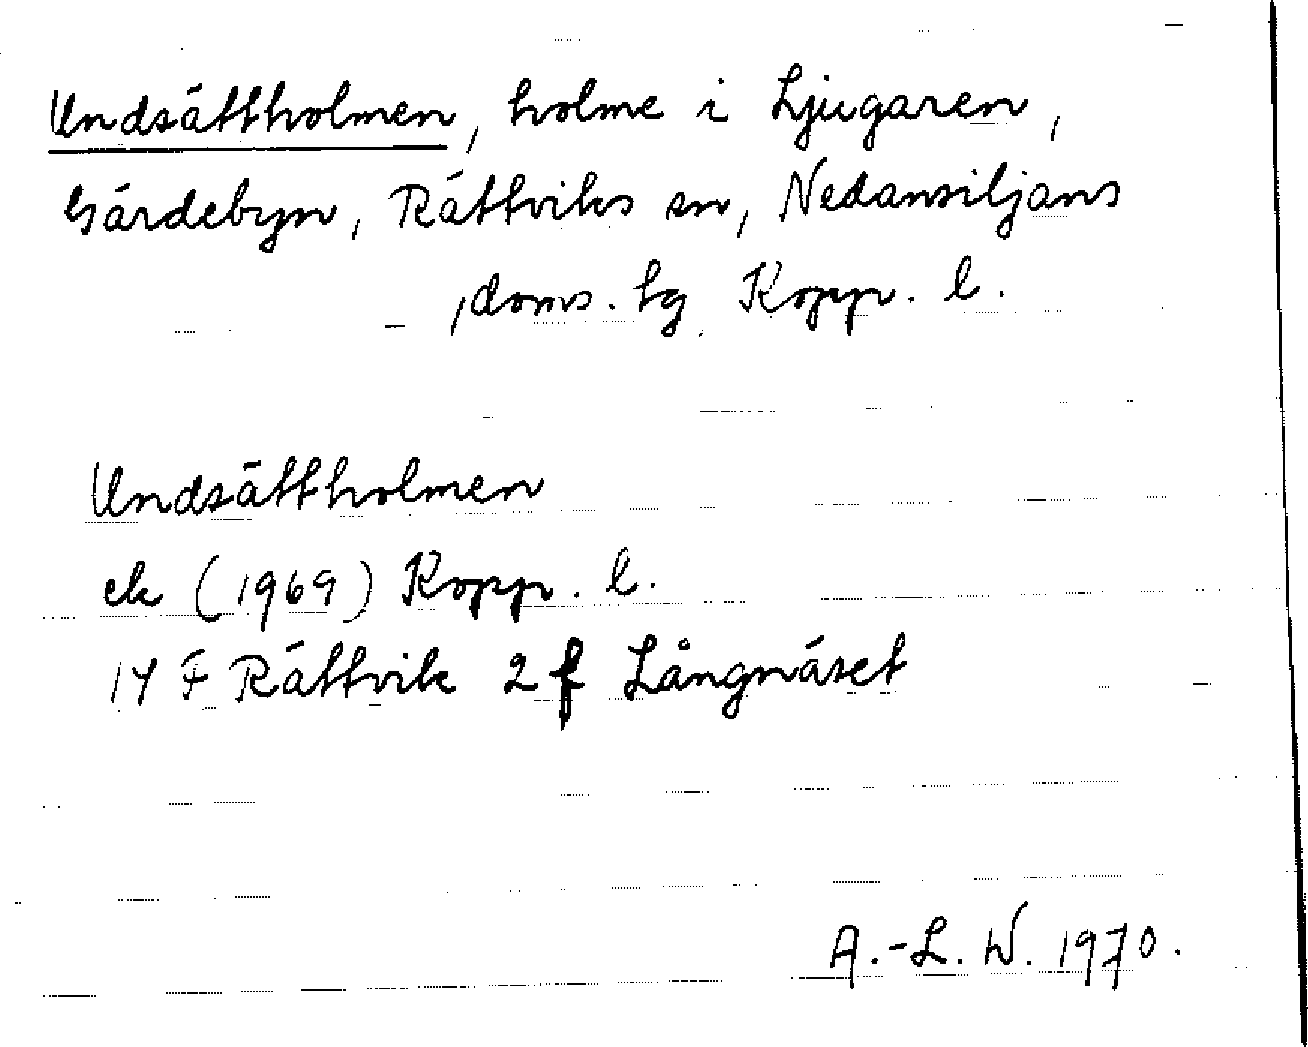 Undsättholmen, holme i Ljugaren,
Gärdebyn, Rättviks sn, Nedansiljans
doms. hg Kopp. l.
Undsättholmen
ek (1969) Kopp. l.
14 F Rättvik 2 f Långnäset
A.-L. W. 1970.